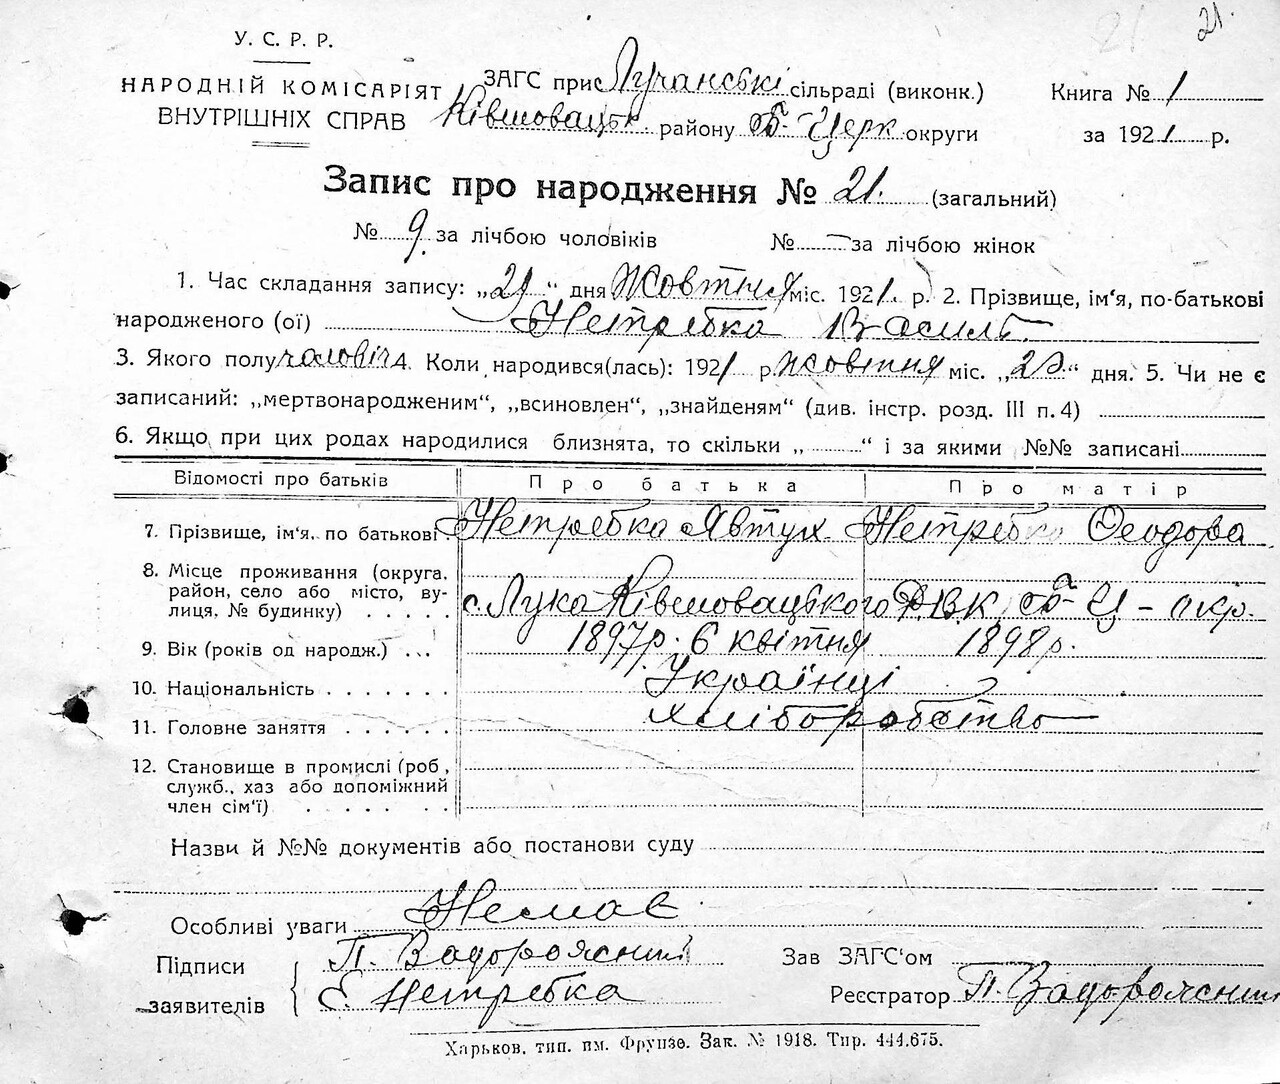 21.
У. С. Р. Р.
НАРОДНІЙ КОМІСАРІЯТ
ВНУТРІШНІХ СПРАВ
ЗАГС при Лучанські сільраді (виконк.)
Ківшовацьк. району Б-Церк округи
Книга № 1
за 1921 р.
Запис про народження № 21. (загальний)
№ 9. за лічбою чоловіків № — за лічбою жінок
1. Час складання запису: „21“ дня Жовтня міс. 1921. р. 2. Прізвище, ім‘я, по-батькові
народженого (ої) Нетребка Василь.
3. Якого полу чоловіч 4. Коли народився(лась): 1921 р Жовтня міс. „20“ дня. 5. Чи не є
записаний: „мертвонародженим“, „всиновлен“, „знайденям“ (див. інстр. розд. III п. 4)
6. Якщо при цих родах народилися близнята, то скільки „ “ і за якими №№ записані
Відомості про батьків Про батька Про матір
7. Прізвище, ім‘я, по батькові Нетребка Явтух Нетребко Феодора
8. Місце проживання (округа,
район, село або місто, ву-
лиця, № будинку) с. Лука Ківшовацького Р.В.К. Б-Ц – окр.
9. Вік (років од народж.) 1897р. 6 квітня 1898р.
10. Національність Українці
11. Головне заняття хліборобство
12. Становище в промислі (роб.,
служб., хаз або допоміжний
член сім‘ї)
Назви й №№ документів або постанови суду
Особливі уваги Немає
Підписи П. Задорожний
заявителів Є. Нетребка
Зав ЗАГС‘ом
Реєстратор П. Задорожний
Харьков, тип. им. Фрунзе. Зак. № 1918. Тир. 444.675.